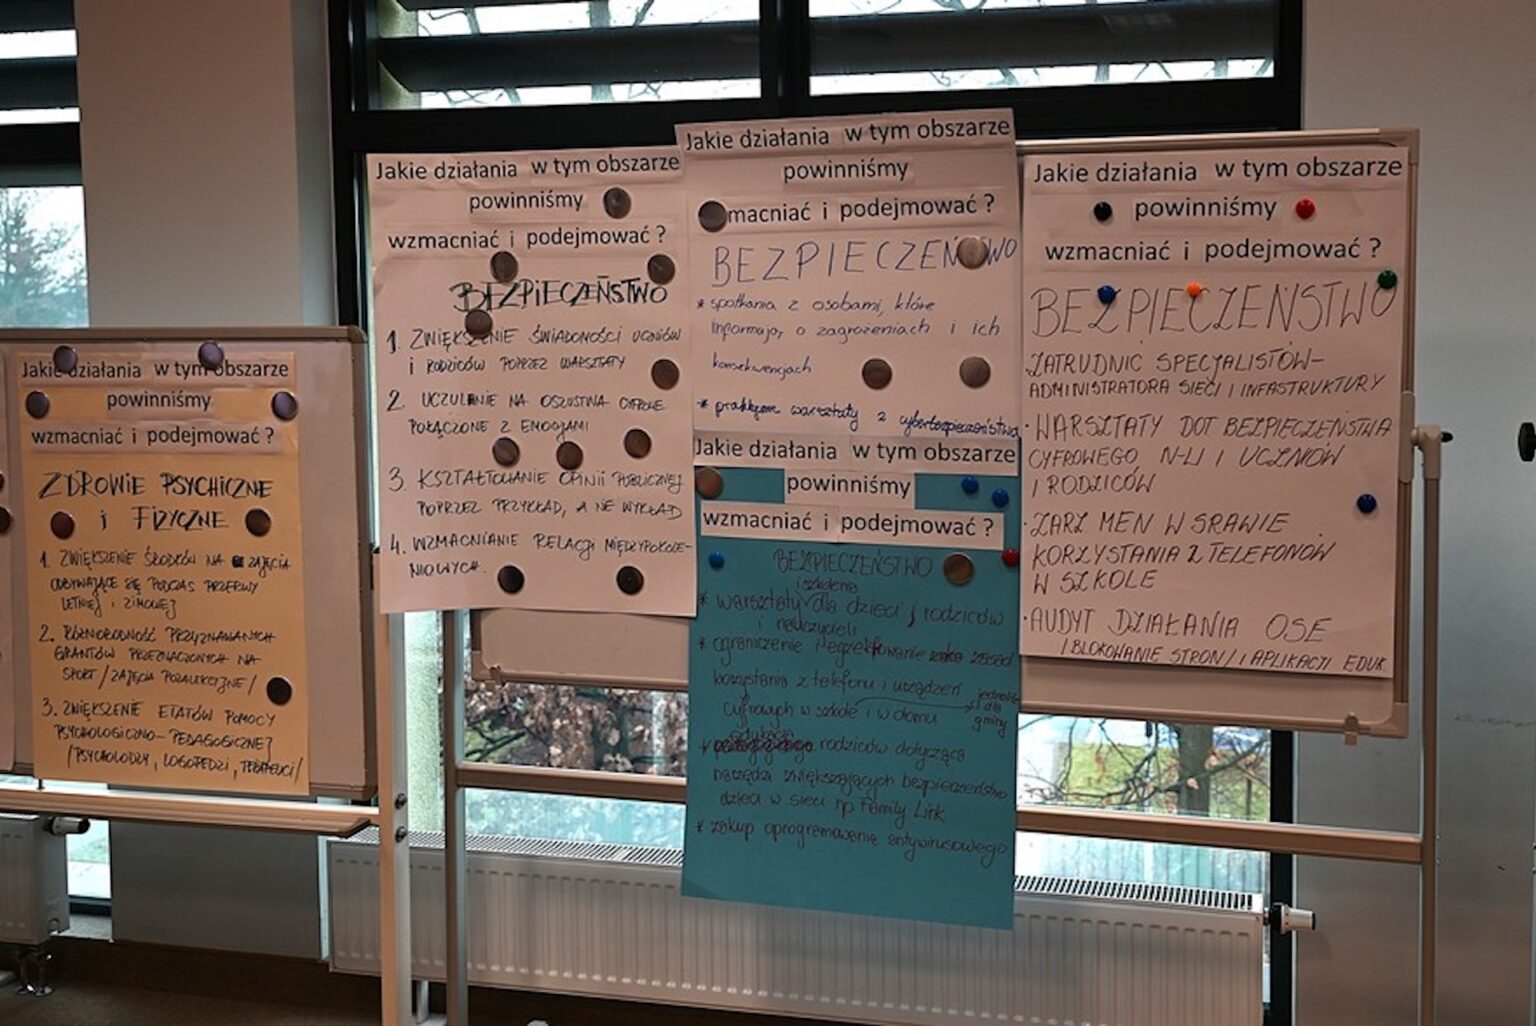 Jakie działania w tym obszarze
powinniśmy
wzmacniać i podejmować ?
ZDROWIE PSYCHICZNE
i FIZYCZNE
1. ZWIĘKSZENIE ŚRODKÓW NA ZAJĘCIA
ODBYWAJĄCE SIĘ PODCZAS PRZERWY
LETNIEJ i ZIMOWEJ
2. RÓŻNORODNOŚĆ PRZYZNAWANYCH
GRANTÓW PRZEZNACZONYCH NA
SPORT / ZAJĘCIA POZALEKCYJNE /
3. ZWIĘKSZENIE ETATÓW POMOCY
PSYCHOLOGICZNO-PEDAGOGICZNEJ
/PSYCHOLODZY, LOGOPEDZI, TERAPEUCI/
Jakie działania w tym obszarze
powinniśmy
wzmacniać i podejmować ?
BEZPIECZEŃSTWO
1. ZWIĘKSZENIE ŚWIADOMOŚCI UCZNIÓW
i RODZICÓW POPRZEZ WARSZTATY
2. UCZULENIE NA OSZUSTWA CYFROWE
POŁĄCZONE Z EMOCJAMI
3. KSZTAŁTOWANIE OPINII PUBLICZNEJ
POPRZEZ PRZYKŁAD, A NIE WYKŁAD
4. WZMACNIANIE RELACJI MIĘDZYPOKOLE-
NIOWYCH.
Jakie działania w tym obszarze
powinniśmy
wzmacniać i podejmować ?
BEZPIECZEŃSTWO
* spotkania z osobami, które
informują o zagrożeniach i ich
konsekwencjach
* praktyczne warsztaty z cyberbezpieczeństwa
Jakie działania w tym obszarze
powinniśmy
wzmacniać i podejmować ?
BEZPIECZEŃSTWO
i szkolenia
* warsztaty dla dzieci, rodziców
i nauczycieli
* ograniczenie i egzekfowanie zasad
korzystania z telefonu i urządzeń jednolite
cyfrowych w szkole i w domu dla
gminy
edukacja
* rodziców dotycząca
narzędzi zwiększających bezpieczeństwo
dzieci w sieci np Family Link
* zakup oprogramowania antywirusowego
Jakie działania w tym obszarze
powinniśmy
wzmacniać i podejmować ?
BEZPIECZEŃSTWO
ZATRUDNIĆ SPECJALISTÓW-
ADMINISTRATORA SIECI I INFASTRUKTURY
· WARSZTATY DOT BEZPIECZEŃSTWA
CYFROWEGO N-LI I UCZNIÓW
I RODZICÓW
· ZARZ MEN W SRAWIE
KORZYSTANIA Z TELEFONÓW
W SZKOLE
· AUDYT DZIAŁANIA OSE
/BLOKOWANIE STRON/ I APLIKACJI EDUK